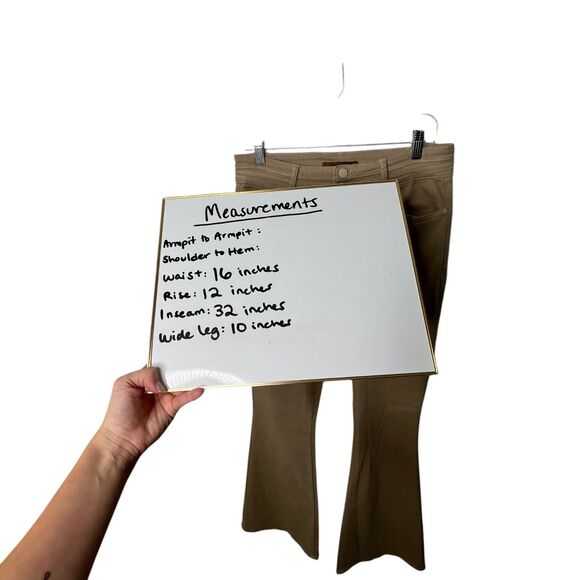 Measurements
Armpit to Armpit:
Shoulder to Hem:
Waist: 16 inches
Rise: 12 inches
Inseam: 32 inches
Wide Leg: 10 inches